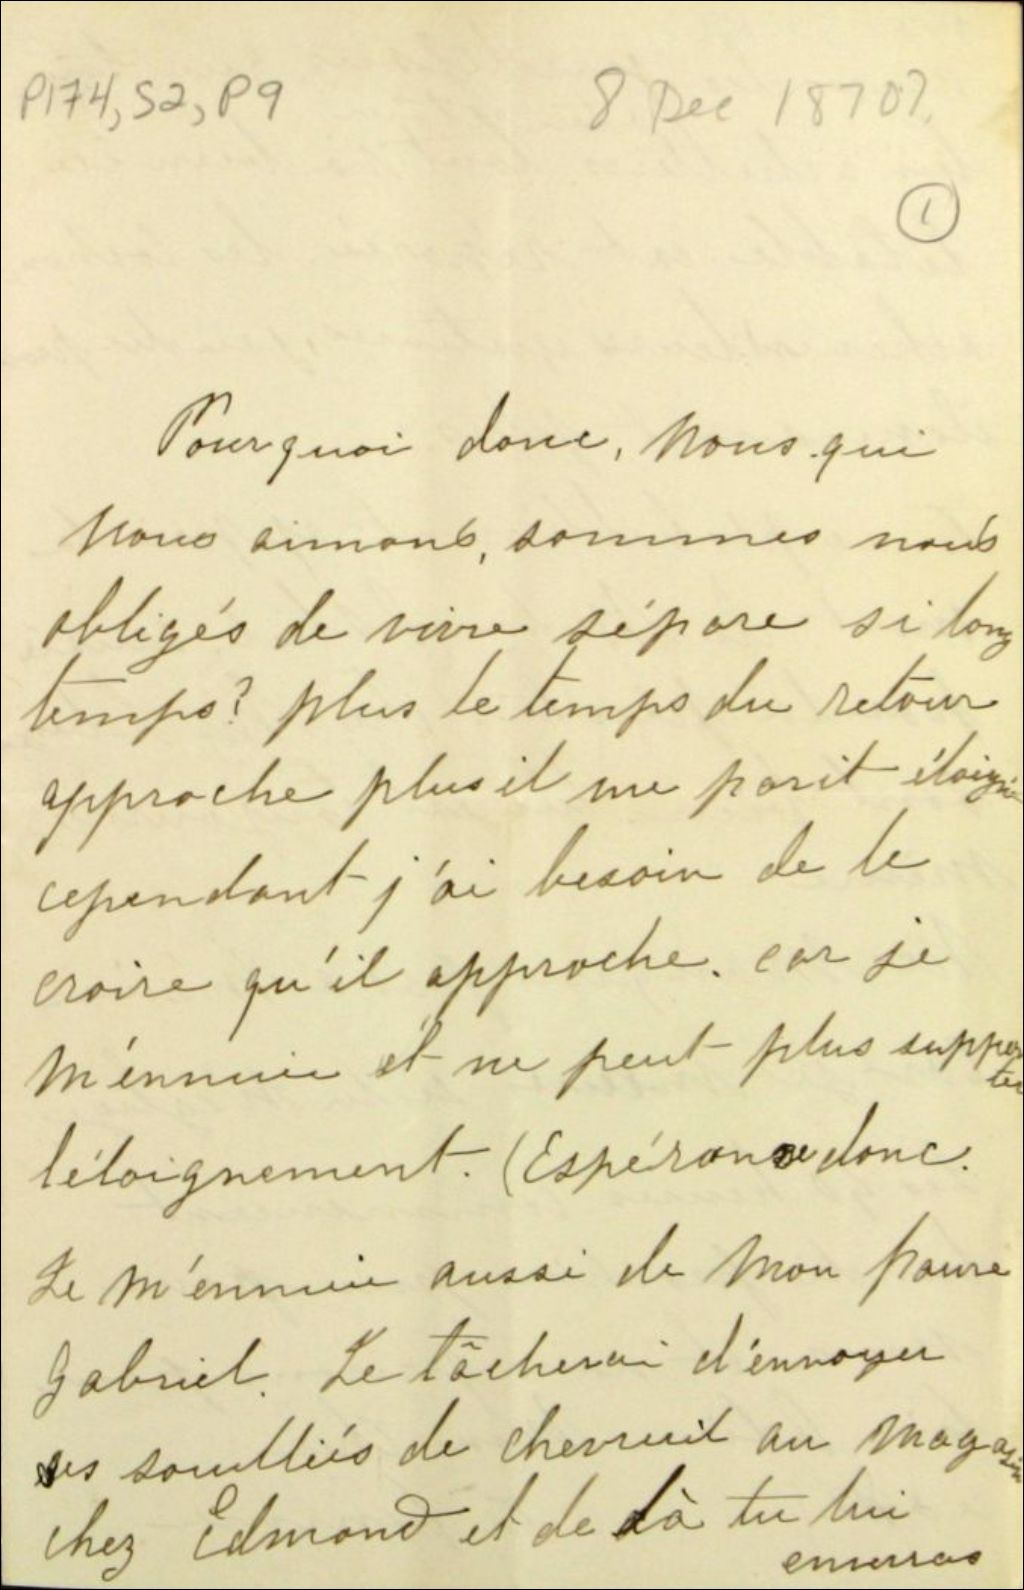 P174, S2, P9
8 Dec 1870?
1
Pourquoi donc, nous qui
nous aimons, sommes nous
obligés de vivre sépare si long
temps? plus le temps du retour
approche plus il me parit éloigné
cependant j'ai besoin de le
croire qu'il approche. car je
m'ennuie et ne peut plus suppor
ter
l'éloignement. (Espérance donc.
Je m'ennuie aussi de mon pauvre
Gabriel. Je tâcherai d'envoyer
ses soulliés de chevreuil au magasin
chez Edmond et de là tu lui
enverras